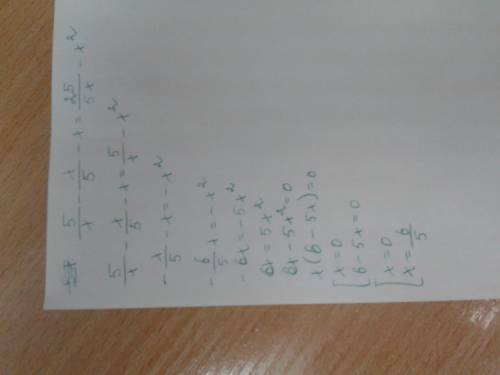 5/x - x/5 - x = 25/5x - x²
5/x - x/5 - x = 5/x - x²
- x/5 - x = - x²
- 6/5 x = - x²
- 6x - 5x²
6x = 5x²
6x - 5x² = 0
x(6 - 5x) = 0
[ x = 0
6 - 5x = 0
[ x = 0
x = 6/5